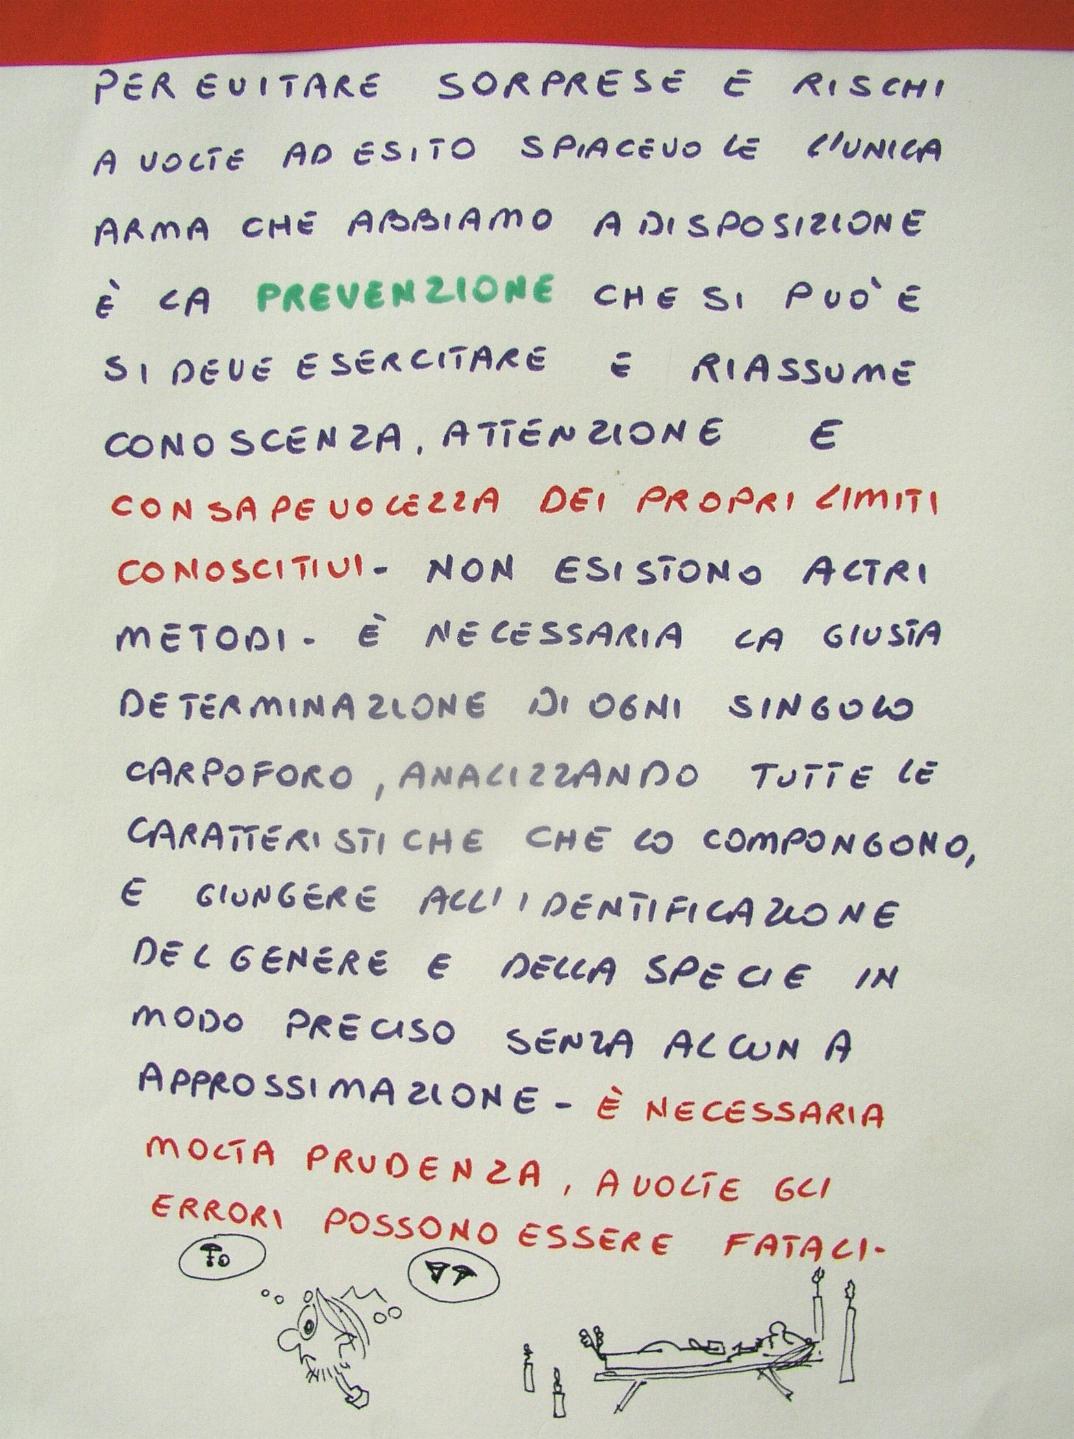 PER EVITARE SORPRESE E RISCHI
A VOLTE AD ESITO SPIACEVOLE L'UNICA
ARMA CHE ABBIAMO A DISPOSIZIONE
È LA PREVENZIONE CHE SI PUO' E
SI DEVE ESERCITARE E RIASSUME
CONOSCENZA, ATTENZIONE E
CONSAPEVOLEZZA DEI PROPRI LIMITI
CONOSCITIVI - NON ESISTONO ALTRI
METODI - È NECESSARIA LA GIUSTA
DETERMINAZIONE DI OGNI SINGOLO
CARPOFORO, ANALIZZANDO TUTTE LE
CARATTERISTICHE CHE LO COMPONGONO,
E GIUNGERE ALL'IDENTIFICAZIONE
DEL GENERE E DELLA SPECIE IN
MODO PRECISO SENZA ALCUNA
APPROSSIMAZIONE - È NECESSARIA
MOLTA PRUDENZA, A VOLTE GLI
ERRORI POSSONO ESSERE FATALI -